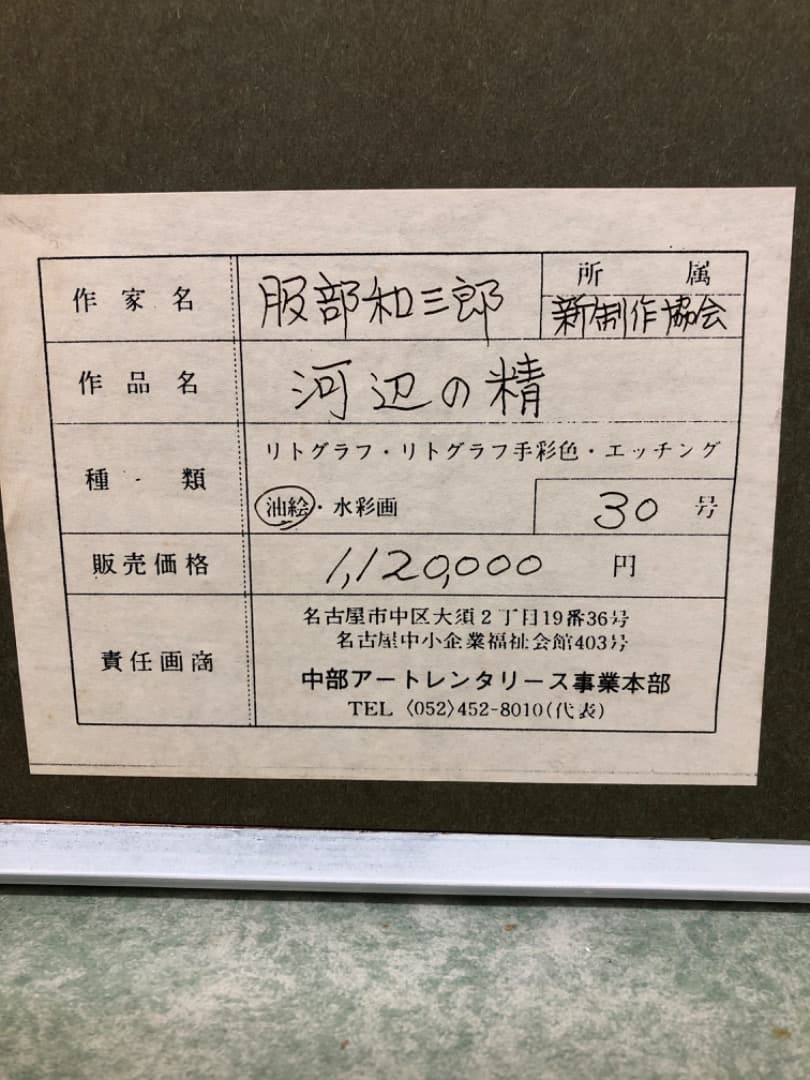 作家名 服部和三郎 所属
新制作協会
作品名 河辺の精
種類 リトグラフ・リトグラフ手彩色・エッチング
油絵・水彩画 30号
販売価格 1,120,000円
責任画商 名古屋市中区大須2丁目19番36号
名古屋中小企業福祉会館403号
中部アートレンタリース事業本部
TEL〈052〉452-8010(代表)